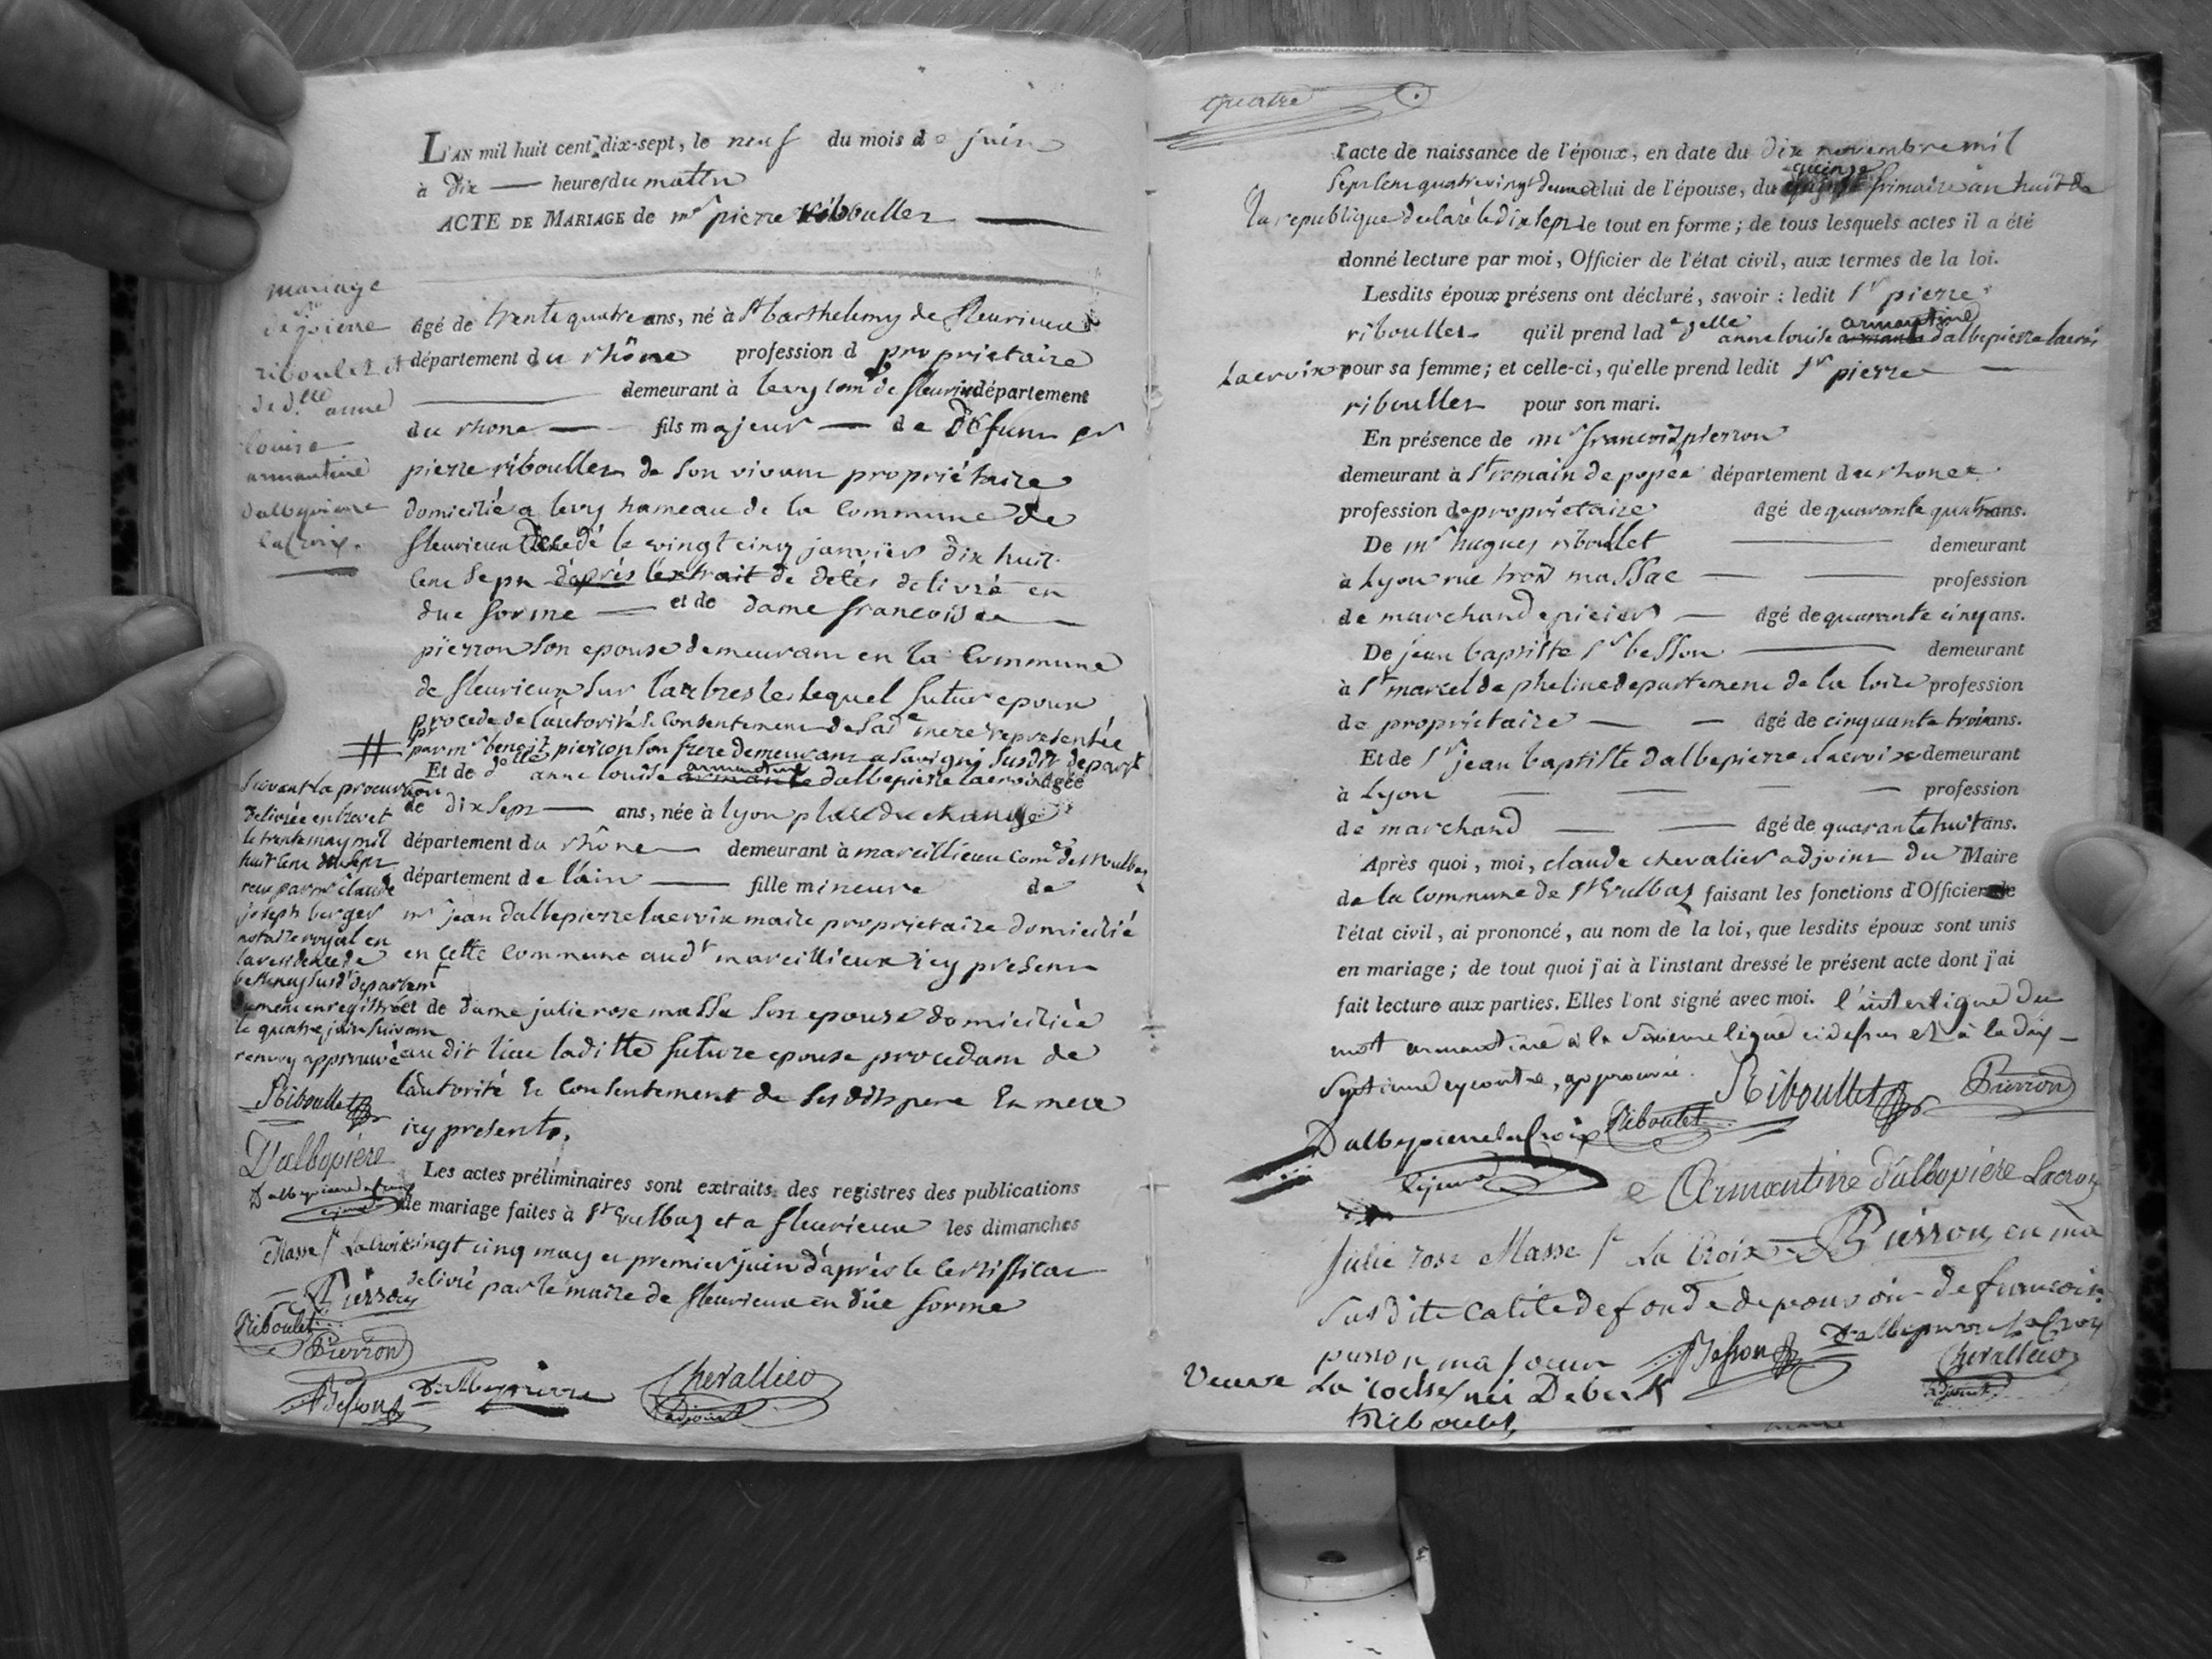 L'AN mil huit cent dix-sept, le neuf du mois de juin
à Dix — heures du matin
ACTE DE MARIAGE de mr pierre riboullet
mariage
de pierre
riboulet et
de dlle anne
louise
armantine
dalbepierre
lacroix.
âgé de trente quatre ans, né à St barthelemy de fleurieux
département du rhône profession de proprietaire
demeurant à levy com de fleurieux département
du rhone — fils majeur — de défunt sr
pierre riboullet de son vivant propriétaire
domicilié a levy hameau de la Commune de
fleurieux décédé le vingt cinq janvier dix huit
cent sept d'après l'extrait de décès delivré en
due forme — et de dame francoise
pierron son epouse demeurant en la Commune
de fleurieux sur larbresle lequel futur epoux
procede de l'autorité & consentement de sade mere representée
# par mr benoit pierron son frere demeurant a savigni susdit depart
Et de dlle anne louise armante armantine dalbepierre lacroix âgée
de dix sept — ans, née à lyon place du change
département du rhône — demeurant à marcillieux com de st vulbas
département de lain — fille mineure de
mr jean dalbepierre lacroix maire proprietaire domicilié
en cette commune audt marcillieux icy present
et de dame julie rose masse son epouse domiciliée
au dit lieu laditte future epouse procedant de
lautorité & consentement de ses dits pere & mere
icy presents.
suivant la procuration
delivrée en brevet
le trente may mil
huit cent dix sept
reçu par mr claude
joseph berger
notaire royal en
la residence de
susdt departemt
dument enregistré
le quatre juin suivant
renvoy approuvé
Riboullet
Dalbepière
Dalbepierre lacroix
lejeune
Les actes préliminaires sont extraits des registres des publications
de mariage faites à St Vulbas et a fleurieux les dimanches
vingt cinq may et premier juin d'après le certifficat
delivré par le maire de fleurieux en düe forme
Masse fe Lacroix
Pierron
Riboulet
Pierron
Besson
Dalbepierre
Chevallier
adjoint
quatre
l'acte de naissance de l'époux, en date du dix novembre mil
sept cent quatre vingt deux celui de l'épouse, du quinze frimaire an huit de
la republique declaré le dix sept le tout en forme; de tous lesquels actes il a été
donné lecture par moi, Officier de l'état civil, aux termes de la loi.
Lesdits époux présens ont déclaré, savoir : ledit sr pierre
riboullet qu'il prend lade dlle anne louise armante armantine dalbepierre lacroix
lacroix pour sa femme; et celle-ci, qu'elle prend ledit sr pierre
riboullet pour son mari.
En présence de mr francois pierron
demeurant à St romain de popée département du rhone
profession de propriétaire âgé de quarante quatre ans.
De mr hugues riboullet — demeurant
à Lyon rue trois massac — profession
de marchand epicier — âgé de quarante cinq ans.
De jean baptiste sr besson — demeurant
à St marcel de pheline departement de la loire profession
de propriétaire — âgé de cinquante trois ans.
Et de sr jean baptiste dalbepierre lacroix demeurant
à Lyon — profession
de marchand — âgé de quarante huit ans.
Après quoi, moi, claude chevalier adjoint du Maire
de la commune de St Vulbas faisant les fonctions d'Officier de
l'état civil, ai prononcé, au nom de la loi, que lesdits époux sont unis
en mariage; de tout quoi j'ai à l'instant dressé le présent acte dont j'ai
fait lecture aux parties. Elles l'ont signé avec moi. l'interligne du
mot armantine à la sixieme ligne ci dessus et à la dix
septieme ey contre, approuvé.
Riboullet
Pierron
Dalbepierre lacroix
Riboulet
lejeune
Armantine dalbepière Lacroix
Julie rose Masse fe La Croix
Pierron en ma
susdite calite de fondé de pouvoir de francoise
pieron ma soeur
Besson
Dalbepierre lacroix
Chevallier
adjoint
Veuve
Riboulet